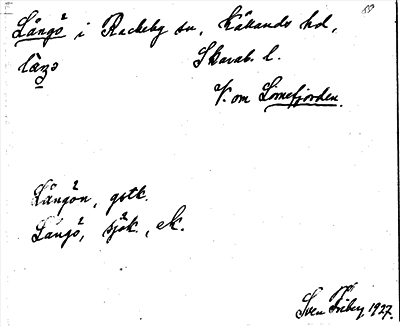 Långö i Rackeby sn, Kållands hd,
Skarab. l.
V. om Lörnefjorden.
Långön, gstk.
Långö, sjök., ek.
Sven Friberg 1927.